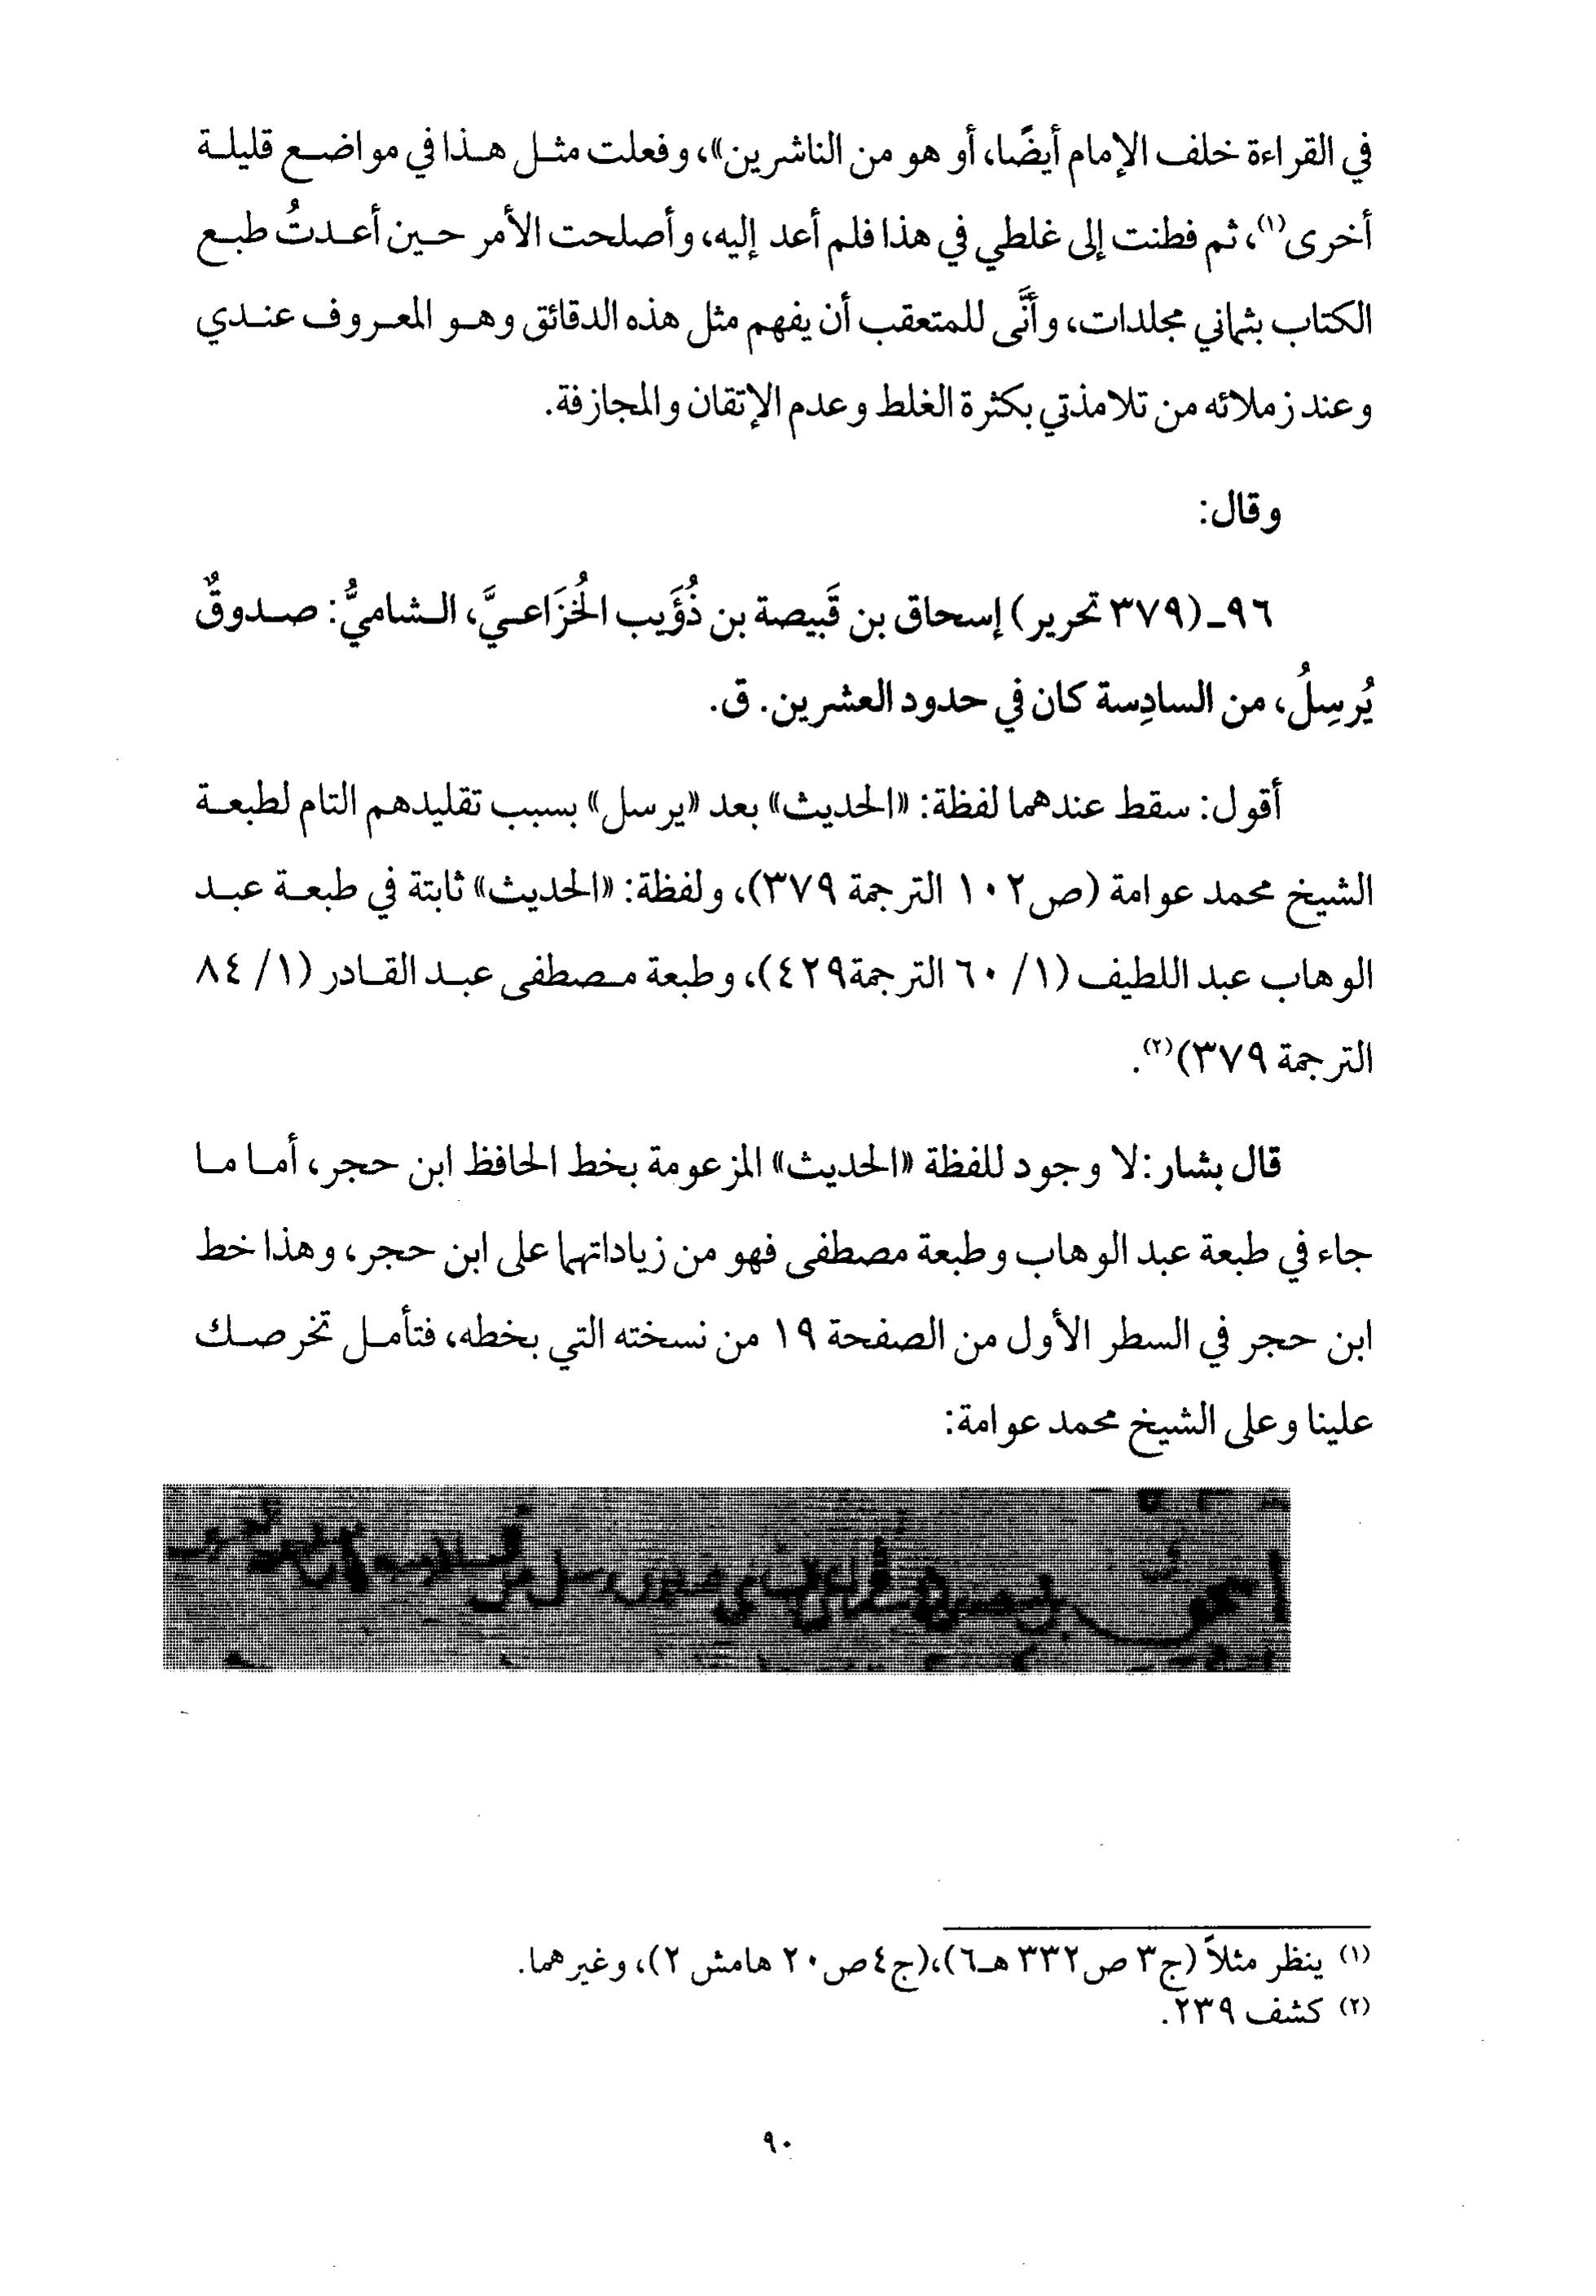 في القراءة خلف الإمام أيضًا، أو هو من الناشرين»، وفعلت مثل هذا في مواضع قليلة
أخرى(١)، ثم فطنت إلى غلطي في هذا فلم أعد إليه، وأصلحت الأمر حين أعدتُ طبع
الكتاب بثماني مجلدات، وأنَّى للمتعقب أن يفهم مثل هذه الدقائق وهو المعروف عندي
وعند زملائه من تلامذتي بكثرة الغلط وعدم الإتقان والمجازفة.
وقال:
٩٦ـ (٣٧٩ تحرير) إسحاق بن قَبيصة بن ذُؤَيب الخُزَاعيَّ، الشاميُّ: صدوقٌ
يُرسِلُ، من السادِسة كان في حدود العشرين. ق.
أقول: سقط عندهما لفظة: «الحديث» بعد «يرسل» بسبب تقليدهم التام لطبعة
الشيخ محمد عوامة (ص١٠٢ الترجمة ٣٧٩)، ولفظة: «الحديث» ثابتة في طبعة عبد
الوهاب عبد اللطيف (١/ ٦٠ الترجمة٤٢٩)، وطبعة مصطفى عبد القادر (١/ ٨٤
الترجمة ٣٧٩)(٢).
قال بشار: لا وجود للفظة «الحديث» المزعومة بخط الحافظ ابن حجر، أما ما
جاء في طبعة عبد الوهاب وطبعة مصطفى فهو من زياداتهما على ابن حجر، وهذا خط
ابن حجر في السطر الأول من الصفحة ١٩ من نسخته التي بخطه، فتأمل تخرصك
علينا وعلى الشيخ محمد عوامة:
(١) ينظر مثلاً (ج٣ ص٣٣٢ هـ٦)،(ج٤ ص٢٠ هامش ٢)، وغيرهما.
(٢) كشف ٢٣٩.
٩٠